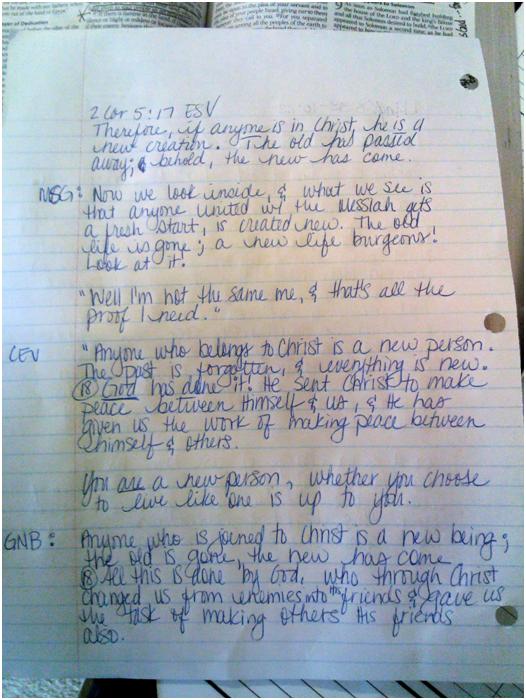 2 Cor 5:17 ESV
Therefore, if anyone is in Christ, he is a
new creation. The old has passed
away; behold, the new has come.
MSG: Now we look inside, & what we see is
that anyone united w/ the Messiah gets
a fresh start, is created new. The old
life is gone; a new life burgeons!
Look at it!
"Well I'm not the same me, & that's all the
proof I need."
CEV "Anyone who belongs to Christ is a new person.
The past is forgotten, & everything is new.
(18) God has done it! He sent Christ to make
peace between Himself & us, & He has
given us the work of making peace between
himself & others.
You are a new person, whether you choose
to live like one is up to you.
GNB: Anyone who is joined to Christ is a new being;
the old is gone, the new has come
(18) All this is done by God, who through Christ
changed us from enemies into His friends & gave us
the task of making others His friends
also.